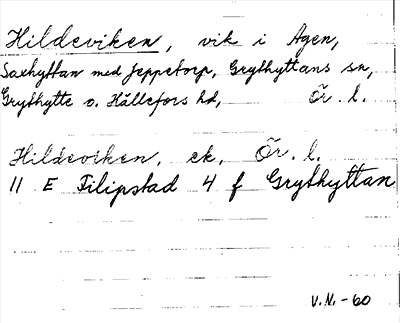 Hildeviken, vik i Agen,
Saxhyttan med Jeppetorp, Grythyttans sn,
Grythytte o. Hällefors hd, Ör. l.
Hildeviken, ek, Ör. l.
11 E Filipstad 4 f Grythyttan
V.N.-60